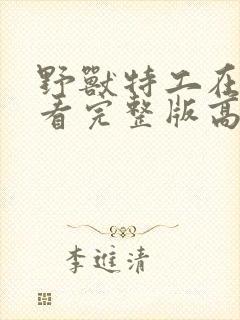 野獸特工在
看完整版高
李進清